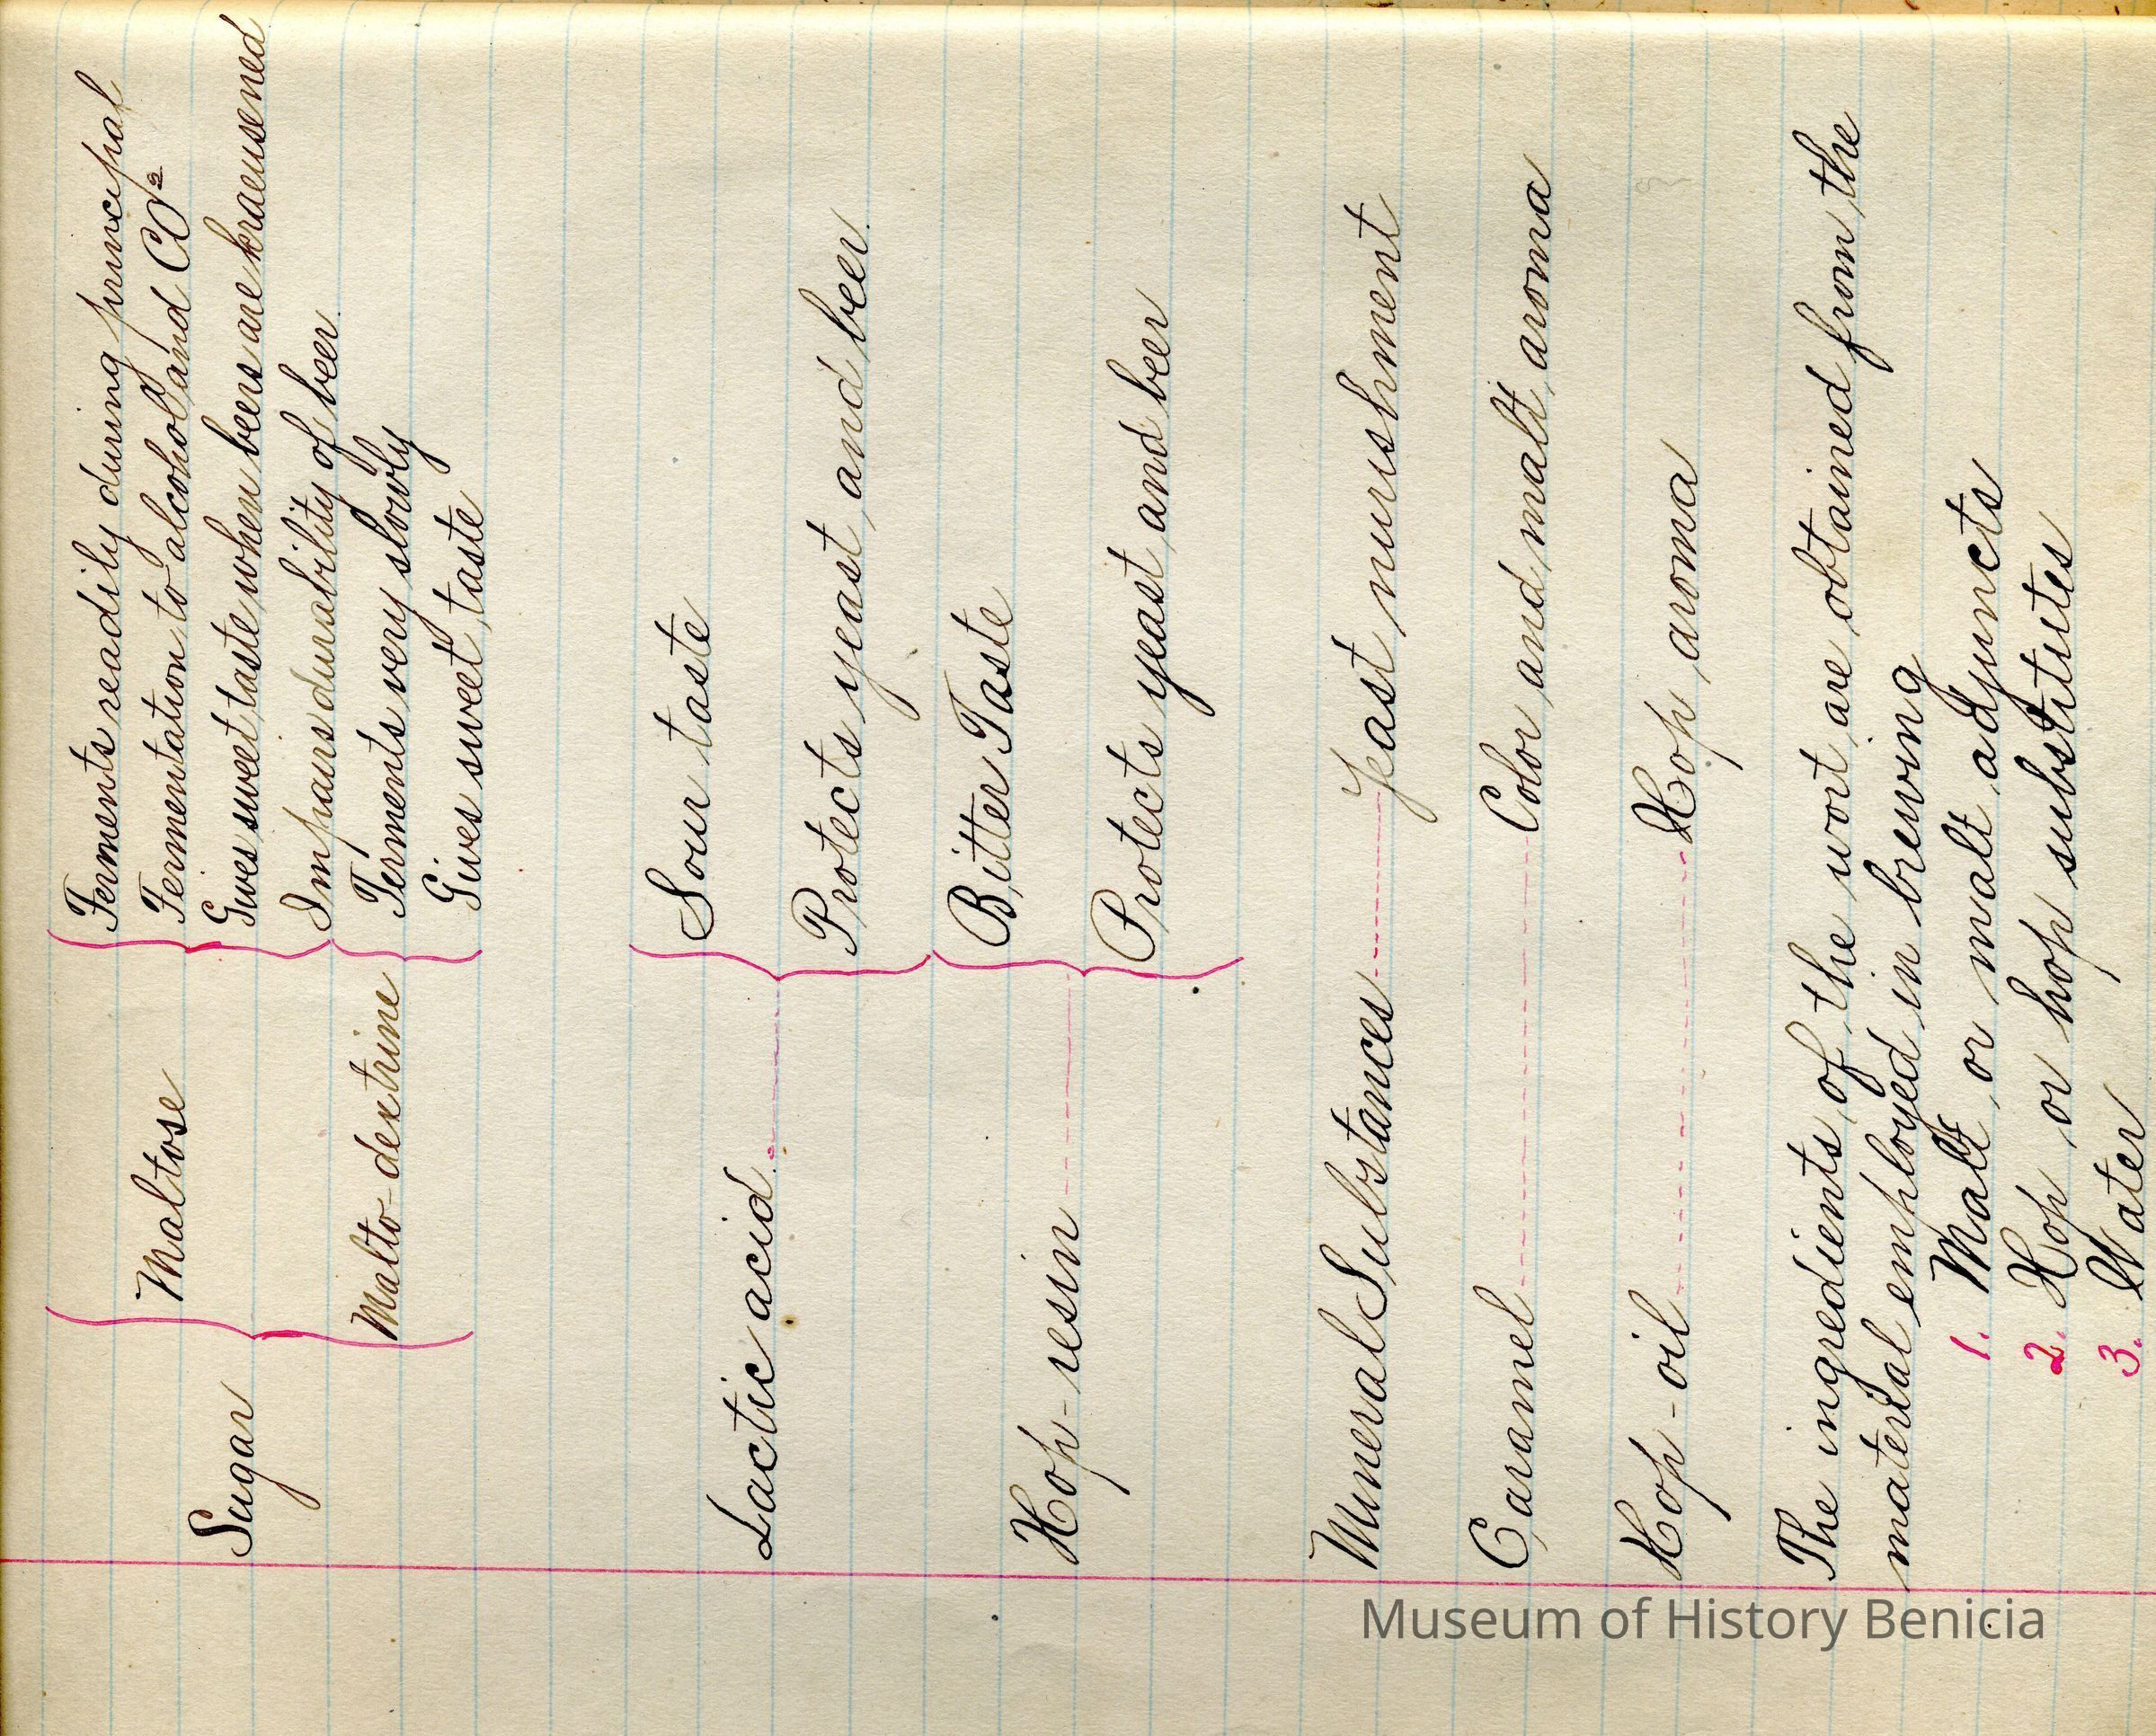 Ferments readily during principal
Maltose Fermentation to alcohol and CO2
Gives sweet taste when beers are kraeusened
Sugar Impairs durability of beer
Malto-dextrine Ferments very slowly
Gives sweet taste
Sour taste
Lactic acid
Protects yeast and beer
Bitter Taste
Hop-resin
Protects yeast and beer
Mineral Substances Yeast nurishment
Caramel Color and malt aroma
Hop-oil Hop aroma
The ingredients of the wort are obtained from the
material employed in brewing
1. Malt or malt adjuncts
2. Hop or hop substitutes
3. Water
Museum of History Benicia